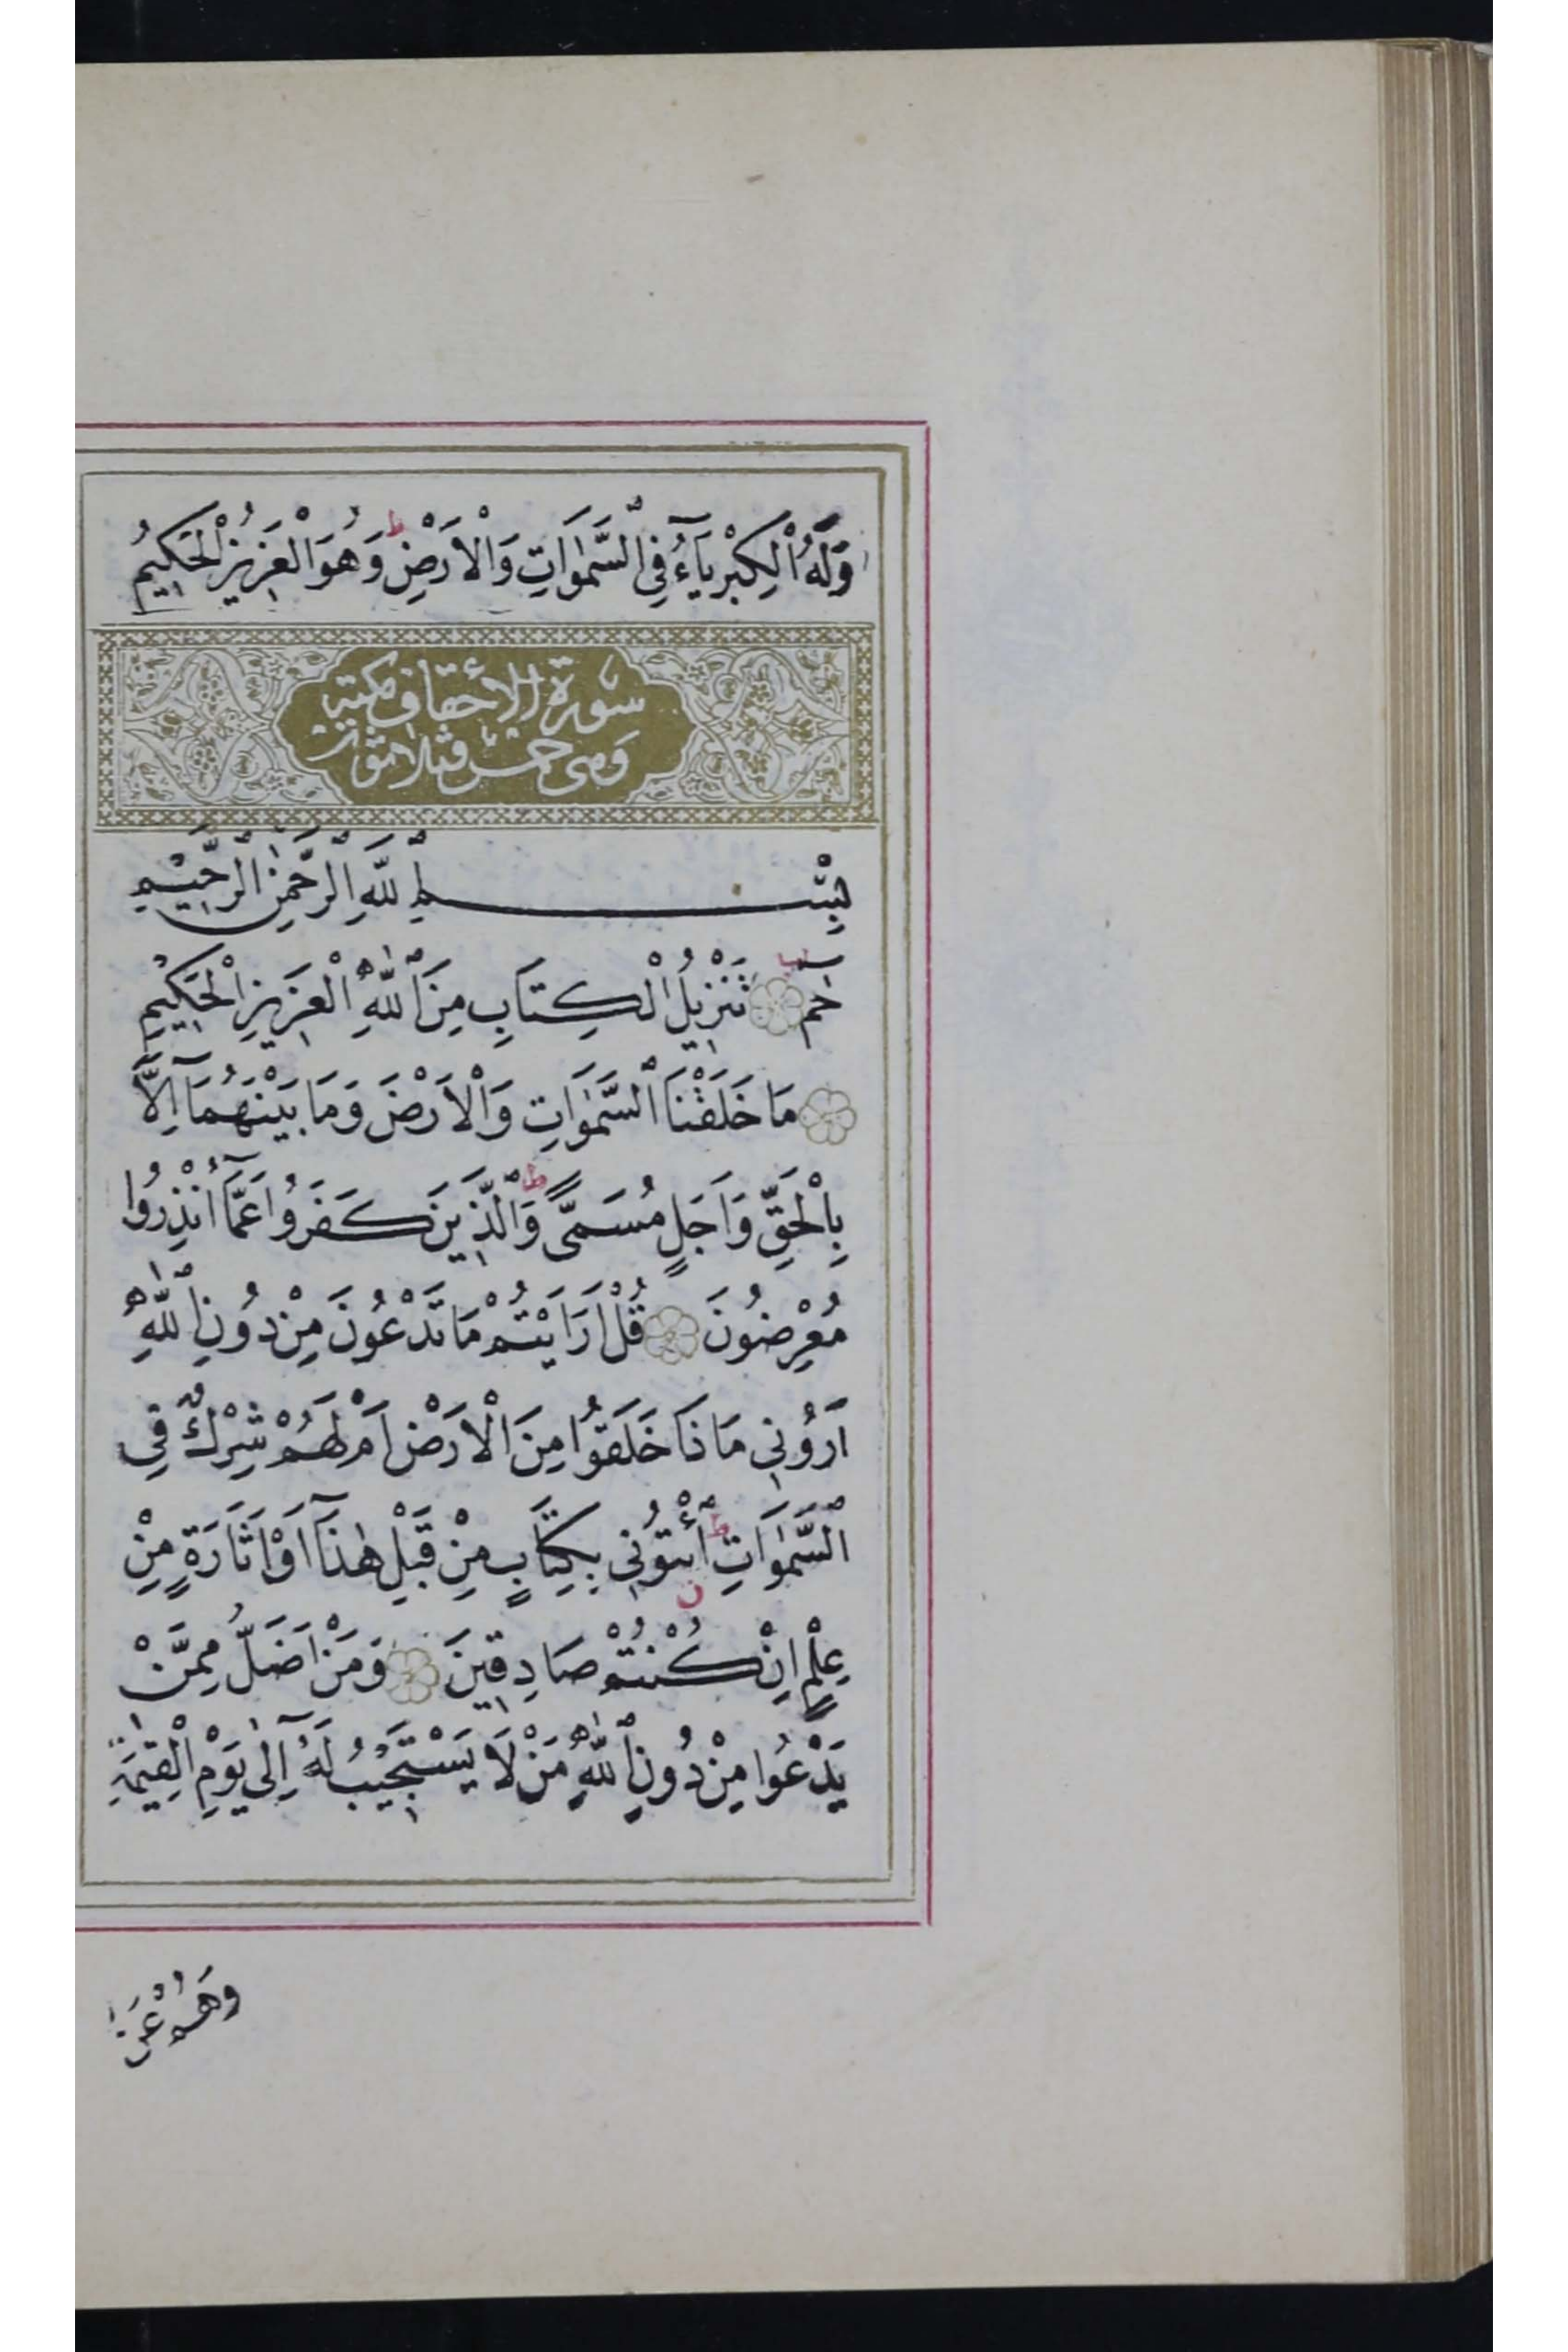 وَلَهُ الْكِبْرِيَآءُ فِي السَّمٰوَاتِ وَالْاَرْضِ ط وَهُوَ الْعَزِيزُ الْحَكِيمُ
سورة الأحقاف مكية
وهى خمس وثلاثون
بِسْمِ اللّٰهِ الرَّحْمٰنِ الرَّحِيمِ
حٰمٓ تَنْزِيلُ الْكِتَابِ مِنَ اللّٰهِ الْعَزِيزِ الْحَكِيمِ
مَا خَلَقْنَا السَّمٰوَاتِ وَالْاَرْضَ وَمَا بَيْنَهُمَآ اِلَّا
بِالْحَقِّ وَاَجَلٍ مُسَمًّى ط وَالَّذِينَ كَفَرُوا عَمَّآ اُنْذِرُوا
مُعْرِضُونَ قُلْ اَرَاَيْتُمْ مَا تَدْعُونَ مِنْ دُونِ اللّٰهِ
اَرُونِي مَاذَا خَلَقُوا مِنَ الْاَرْضِ اَمْ لَهُمْ شِرْكٌ فِي
السَّمٰوَاتِ ط ائْتُونِي بِكِتَابٍ مِنْ قَبْلِ هٰذَآ اَوْ اَثَارَةٍ مِنْ
عِلْمٍ اِنْ كُنْتُمْ صَادِقِينَ وَمَنْ اَضَلُّ مِمَّنْ
يَدْعُوا مِنْ دُونِ اللّٰهِ مَنْ لَا يَسْتَجِيبُ لَهُ اِلٰى يَوْمِ الْقِيٰمَةِ
وَهُمْ عَنْ